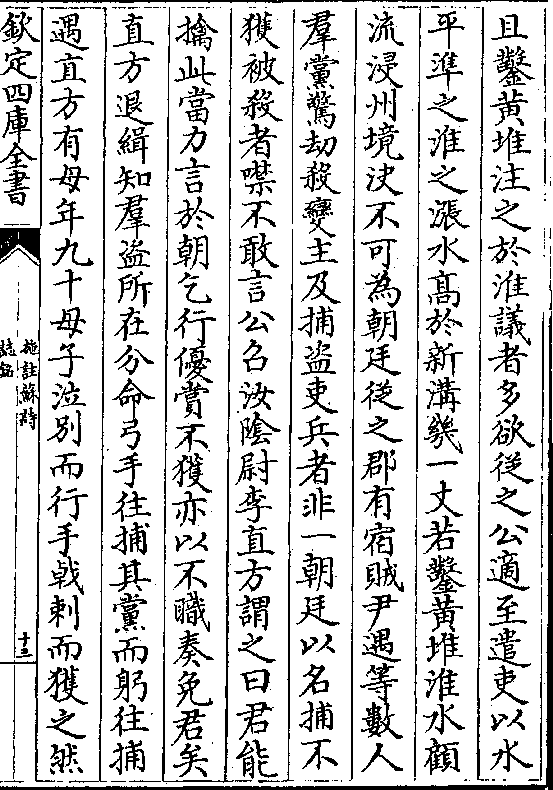 且鑿黃堆注之於淮議者多欲從之公適至遣吏以水
平準之淮之漲水髙於新溝幾一丈若鑿黃堆淮水顧
流浸州境決不可為朝廷從之郡有宿賊尹遇等數人
羣黨驚劫殺變主及捕盜吏兵者非一朝廷以名捕不
獲被殺者噤不敢言公召汝陰尉李直方謂之曰君能
擒此當力言於朝乞行優賞不獲亦以不職奏免君矣
直方退緝知羣盜所在分命弓手往捕其黨而躬往捕
遇直方有母年九十母子泣別而行手戟刺而獲之然
欽定四庫全書
施註蘇詩
誌銘
十三